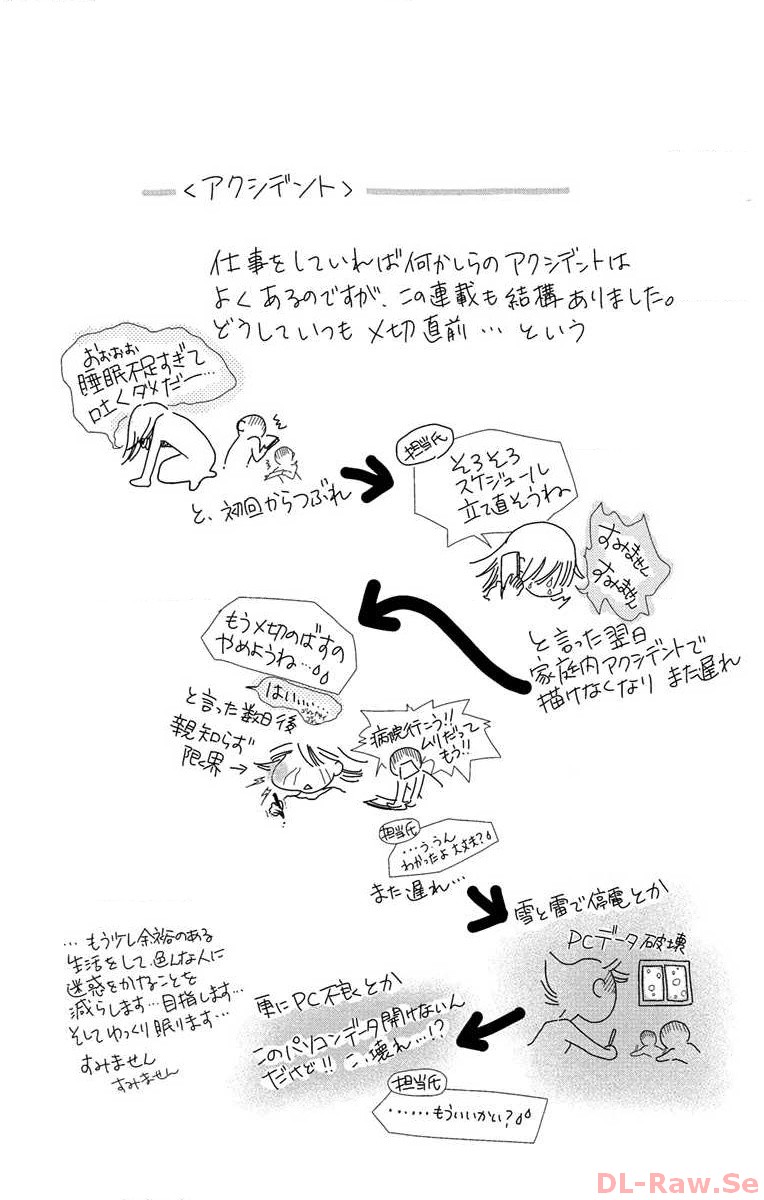 <アクシデント>
仕事をしていれば何かしらのアクシデントは
よくあるのですが、この連載も結構ありました。
どうしていつも〆切直前…という
おぉぉぉ
睡眠不足すぎて
吐くダメだー…
と、初回からつぶれ
担当氏
そろそろ
スケジュール
立て直そうね
すみません
すみません
と言った翌日
家庭内アクシデントで
描けなくなり また遅れ
もう〆切のばすの
やめようね…
はい……
と言った数日後
親知らず
限界→
病院行こう!!
ムリだって
もう!!
担当氏
…う、うん
わかったよ 大丈夫?
また遅れ…
雪と雷で停電とか
PCデータ破壊
単にPC不良とか
このパソコンデータ開けないん
だけど!! こ、壊れ…!?
担当氏
……もういいかい?
…もう少し余裕のある
生活をして、色んな人に
迷惑をかけることを
減らします…目指します…
そしてゆっくり眠ります…
すみません
すみません
DL-Raw.Se